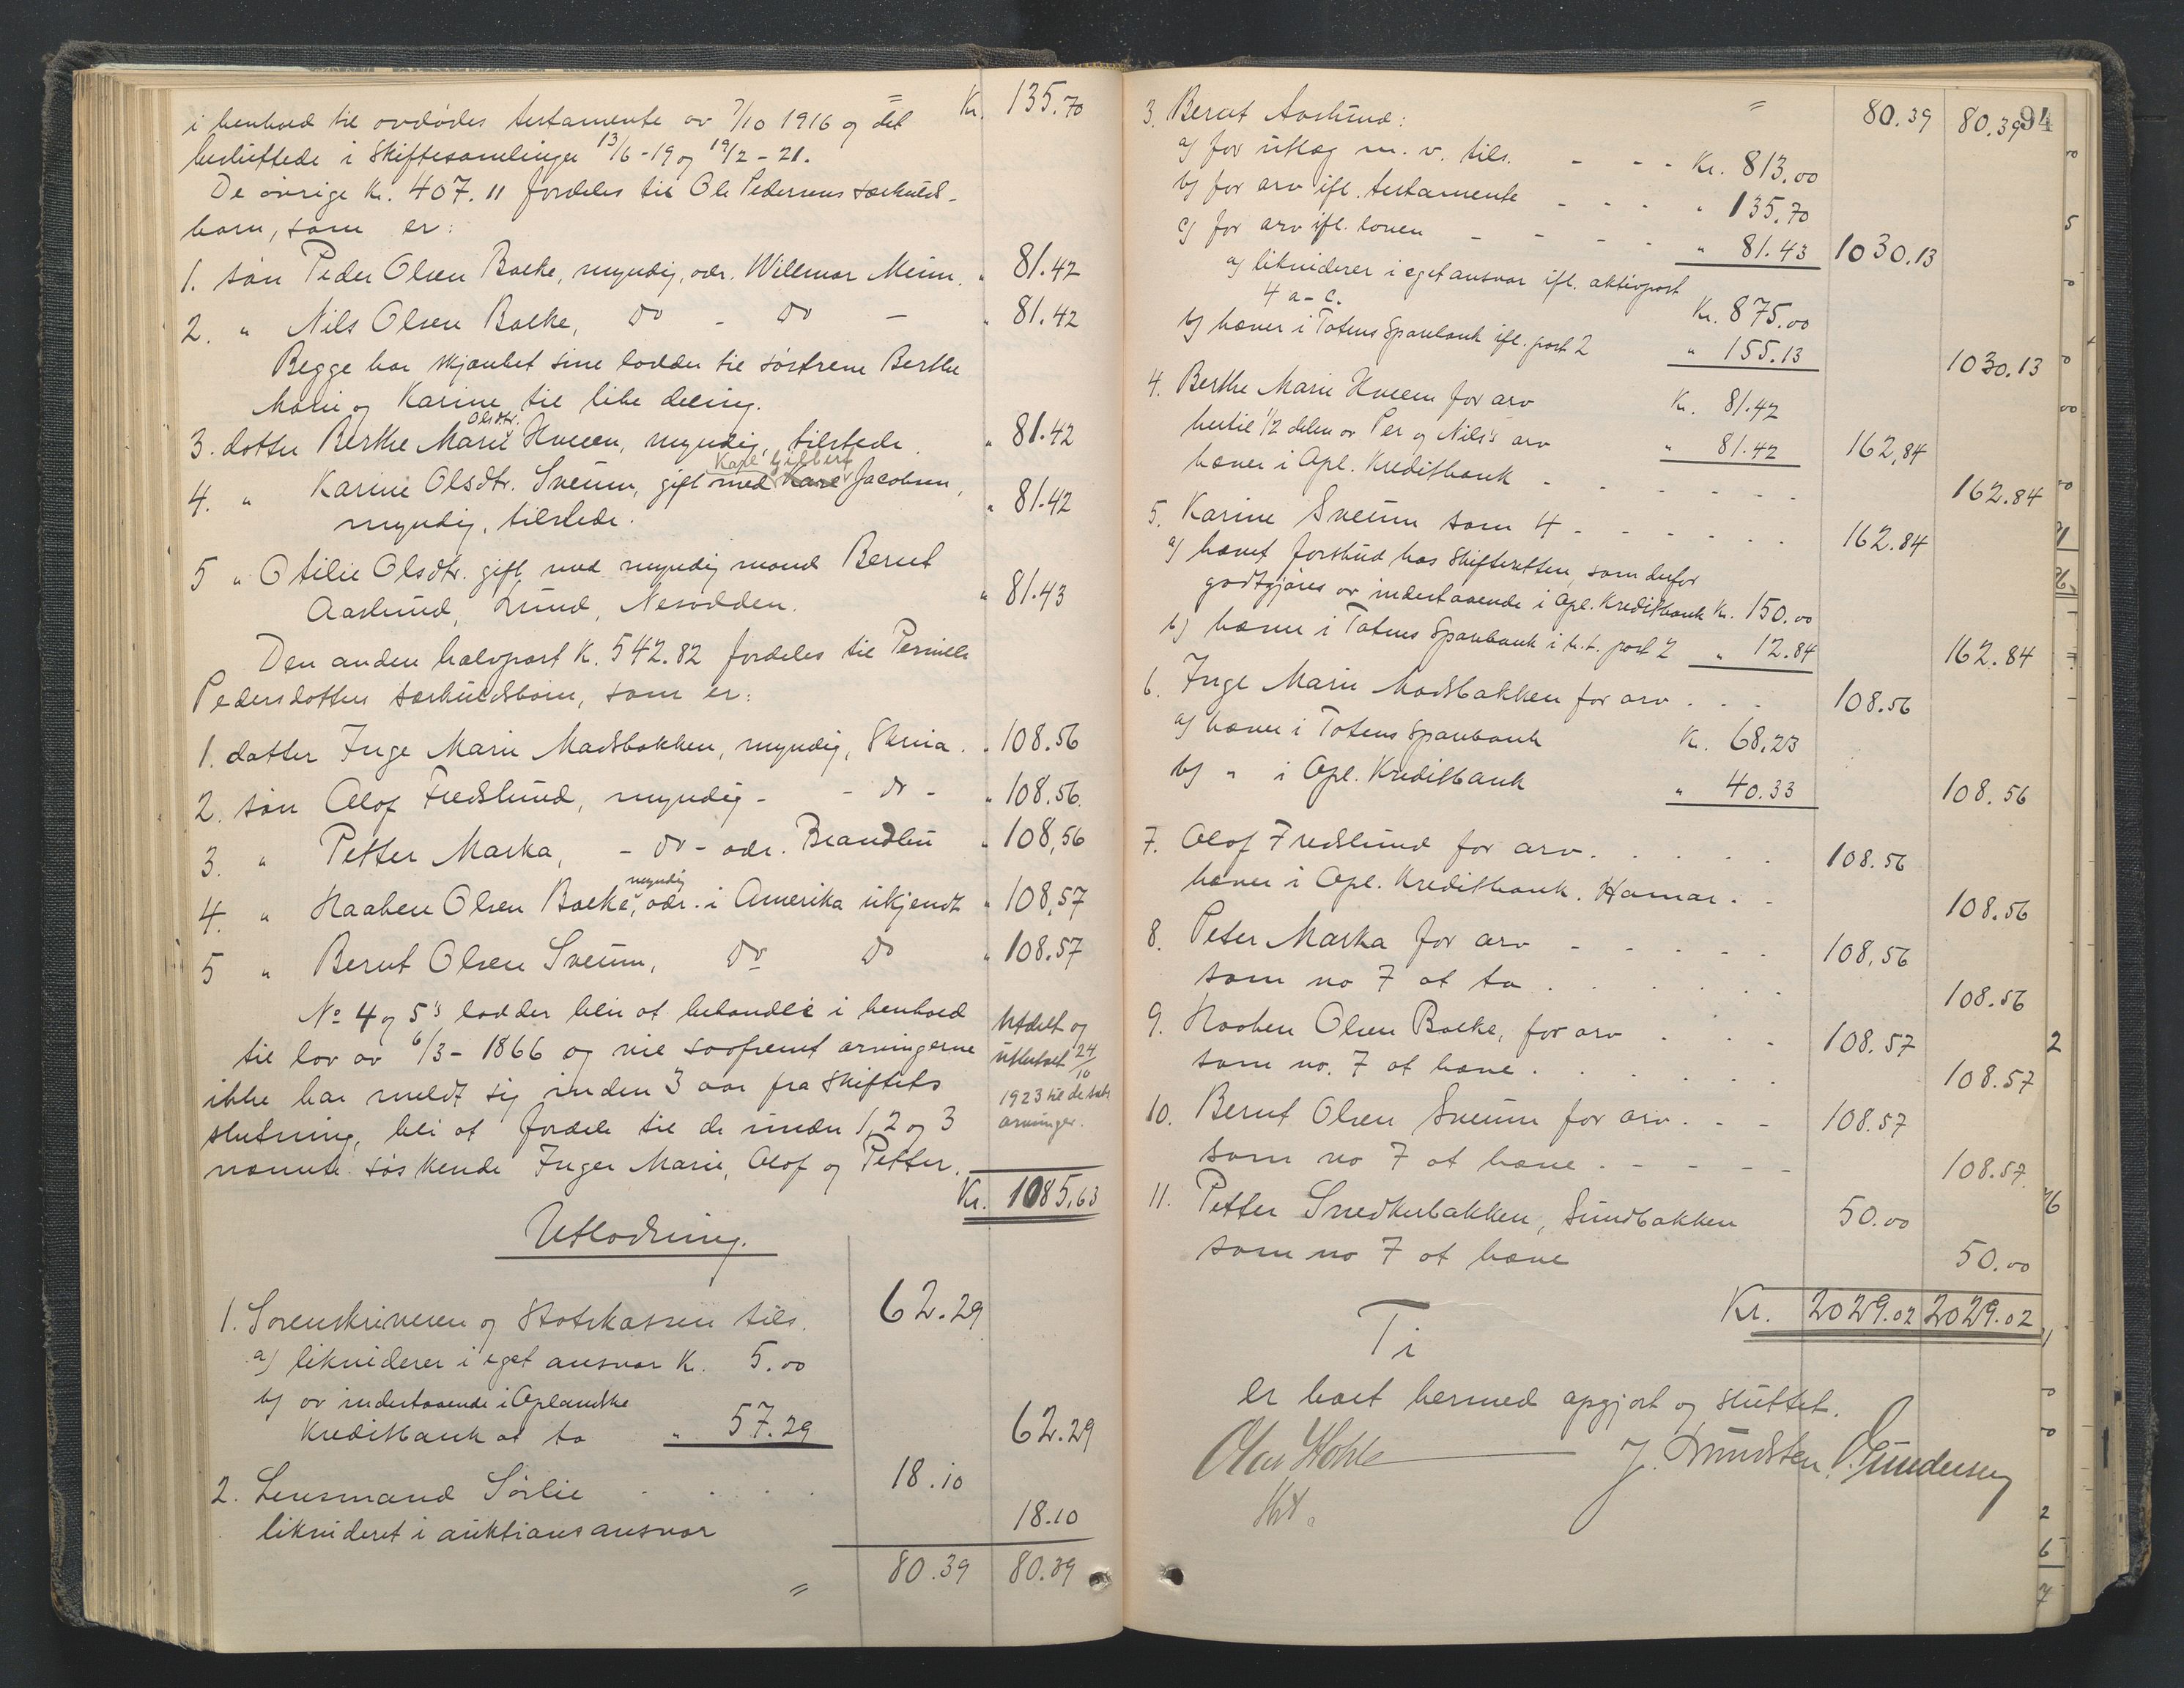 i henhold til avdødes testamente av 7/10 1916 og det = Kr. 135.70
besluttede i Skiftesamlinger 13/6-19 og 19/2-21.
De øvrige Kr. 407.11 fordeles til Ole Pedersens særkuld-
barn, som er:
1. søn Peder Olsen Balke, myndig, adr. Willmar Minn. " 81.42
2. " Nils Olsen Balke, do - do - " 81.42
Begge har skjænket sine lodder til søstrene Berthe
Marie og Karine til like deling.
3. datter Berthe Marie Olsdtr. Hveem, myndig, tilstede. " 81.42
4. " Karine Olsdtr. Sveum, gift med Karl Gilbert Jacobsen, " 81.42
myndig, tilstede.
5 " Otilie Olsdtr. gift med myndig mand Bernt
Aaslund, Lund, Nesodden. " 81.43
Den anden halvpart K. 542.82 fordeles til Pernille
Pedersdatters særkuldsbarn, som er:
1. datter Inge Marie Madsbakken, myndig, Skreia. " 108.56
2. søn Olof Fredslund, myndig - - do - " 108.56
3. " Petter Marka, - do - adr. Brandbu " 108,56
4. " Haaken Olsen Balke, myndig adr. i Amerika ukjendt " 108,57
5 " Bernt Olsen Sveum, do do " 108.57
No 4 og 5's lodder blir at behandle i henhold
til lov av 6/3-1866 og vil saafremt arvingerne
ikke har meldt sig inden 3 aar fra skiftets
slutning, bli at fordele til de under 1, 2 og 3
nævnte søskende Inger Marie, Olof og Petter.
Utdelt og
utbetalt 24/10
1923 til de
arvinger.
Kr. 1085,63
Utlodning.
1. Sorenskriveren og Statskassen tils. 62.29
a) likviderer i eget ansvar Kr. 5.00
b) av indestaaende i Oplandske
Kreditbank at ta " 57.29 62.29
2. Lensmand Sørlie . . . . 18.10
likvideret i auktionsansvar 18.10
= 80.39 80.39
94
= 80.39 80.39
3. Bernt Aaslund:
a) for utlæg m. v. tils. - - - Kr. 813.00
b) for arv ifl. testamente - - - " 135.70
c) for arv ifl. loven - - - - " 81.43 1030.13
a) likviderer i eget ansvar ifl. aktivpost
4 a-c. Kr. 875.00
b) hæver i Totens Sparebank ifl. post 2 " 155.13 1030.13
4. Berthe Marie Hveem for arv Kr. 81.42
hertil 1/2 delen av Per og Nils's arv " 81.42 162,84
hæver i Opl. Kreditbank - - - - - - 162.84
5. Karine Sveum som 4 - - - - - - 162.84
a) hævet forskud hos Skifteretten, som derfor
godtgjøres av indestaaende i Opl. Kreditbank Kr. 150.00
b) hæver i Totens Sparebank i h.t. post 2 " 12.84 162.84
6. Inge Marie Madsbakken for arv . . . 108.56
a) hæver i Totens Sparebank K. 68.23
b) " i Opl. Kreditbank " 40.33 108.56
7. Olof Fredslund for arv. . . . . . 108.56
hæver i Opl. Kreditbank. Hamar. - 108.56
8. Peter Marka for arv - - - - - 108,56
som no 7 at ta . . . . . . 108.56
9. Haaken Olsen Balke, for arv . . . 108.57
som no. 7 at hæve. . . . . . 108.57
10. Bernt Olsen Sveum for arv. - - 108.57
som no 7 at hæve. - - - - 108.57.
11. Petter Snedkerbakken, Sundbakken 50.00
som no 7 at hæve 50.00
Kr. 2029.02 2029.02
Ti
er boet hermed opgjort og sluttet.
J. Lundsten. Gundersen